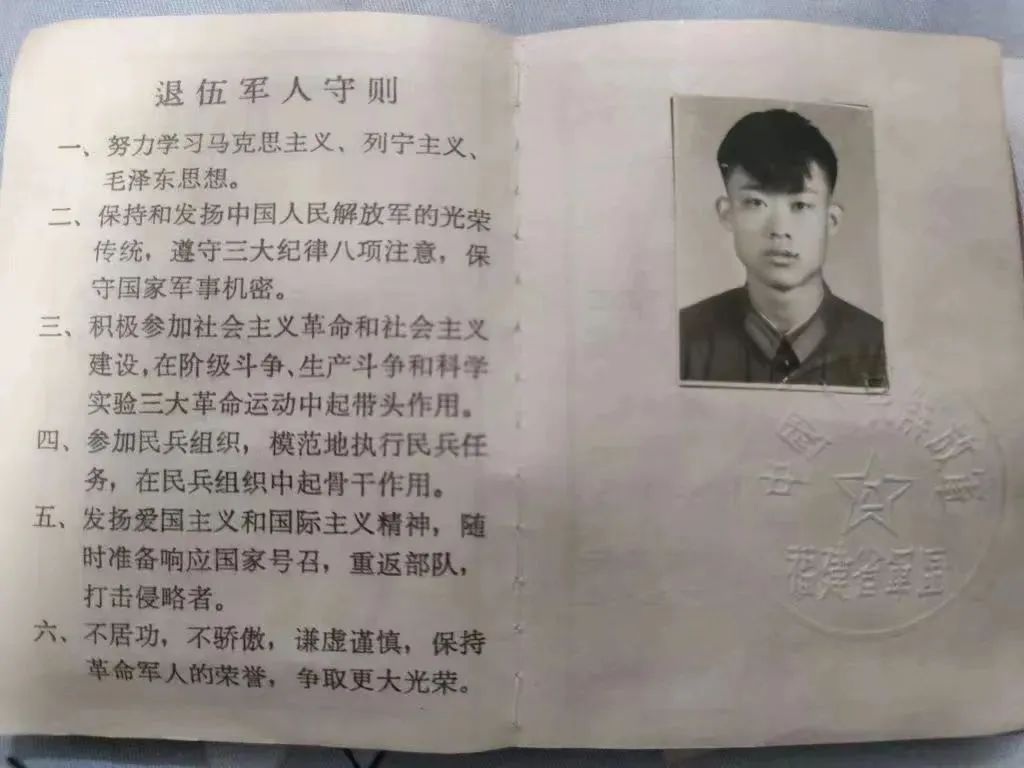 退伍军人守则
一、努力学习马克思主义、列宁主义、
毛泽东思想。
二、保持和发扬中国人民解放军的光荣
传统，遵守三大纪律八项注意，保
守国家军事机密。
三、积极参加社会主义革命和社会主义
建设，在阶级斗争、生产斗争和科学
实验三大革命运动中起带头作用。
四、参加民兵组织，模范地执行民兵任
务，在民兵组织中起骨干作用。
五、发扬爱国主义和国际主义精神，随
时准备响应国家号召，重返部队，
打击侵略者。
六、不居功，不骄傲，谦虚谨慎，保持
革命军人的荣誉，争取更大光荣。
中国 解放军
福建省军区